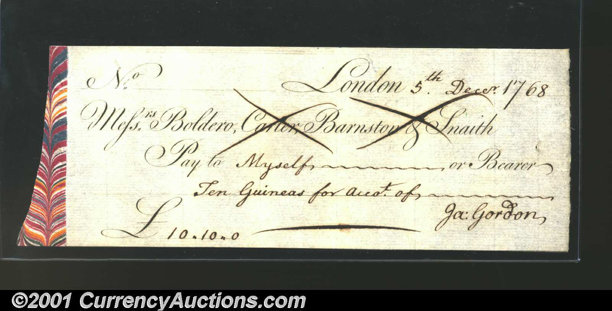 No
London 5th Decer. 1768
Messrs. Boldero, Carter, Barnston & Snaith
Pay to Myself or Bearer
Ten Guineas for Accot. of
Ja: Gordon
£ 10.10.0
©2001 CurrencyAuctions.com